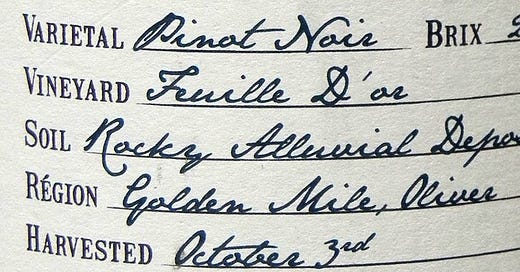 VARIETAL Pinot Noir BRIX
VINEYARD Feuille D'or
SOIL Rocky Alluvial
RÉGION Golden Mile, Oliver
HARVESTED October 3rd